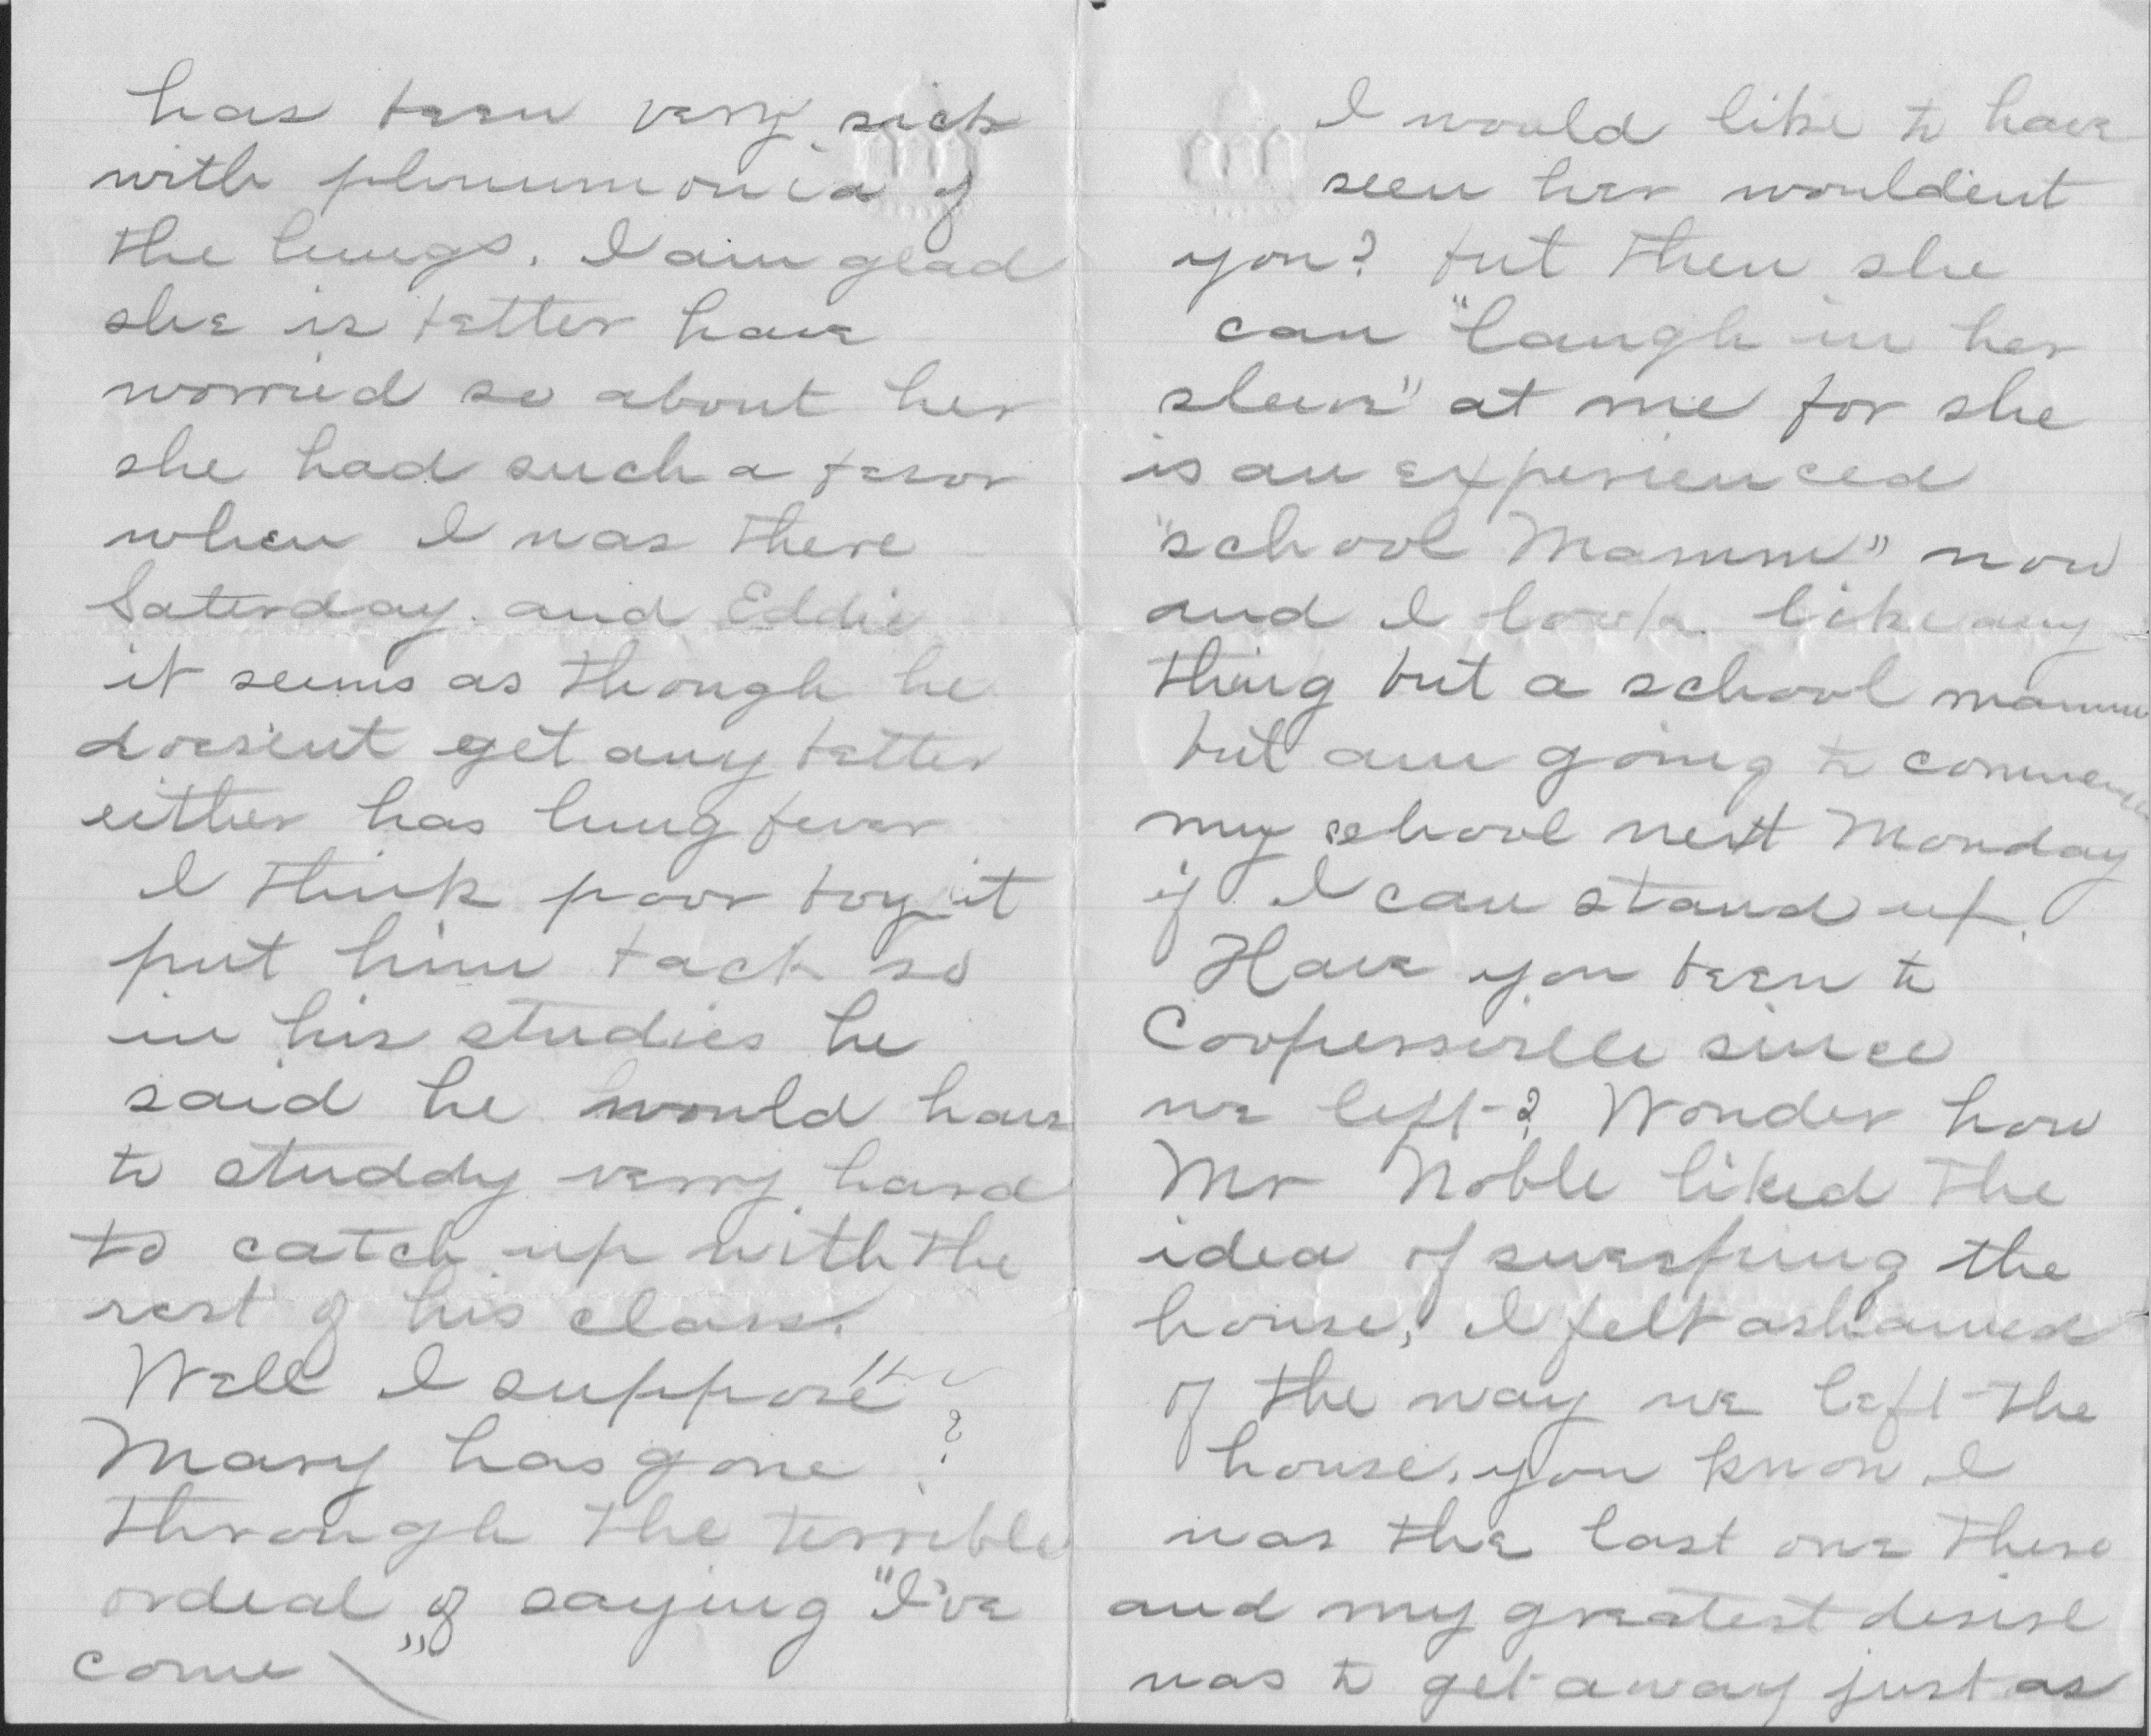 has been very sick
with phnuumonia of
the lungs. I am glad
she is better have
worried so about her
she had such a fevor
when I was there
Saterday. and Eddie
it seems as though he
doesent get any better
either has lung fever
I think poor boy it
put him back so
in his studies he
said he would have
to studdy very hard
to catch up with the
rest of his class.
Well I suppose
Mary has gone ?
through the terrible
ordeal of saying "I've
come"
I would like to have
seen her wouldent
you? but then she
can "laugh in her
sleeve" at me for she
is an experienced
"school Mamm" now
and I look like any
thing but a school mamm
but am going to commence
my school next Monday
if I can stand up.
Have you been to
Coopersville since
we left? Wonder how
Mr Noble liked the
idea of sweeping the
house, I felt ashamed
of the way we left the
house. you know I
was the last one there
and my greatest desire
was to get away just as